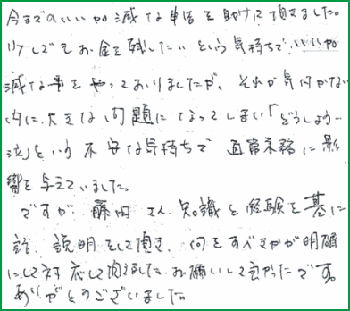 今までのいい加減な申告を助けて頂きました。
少しでもお金を残したいという気持ちで、いい加
減な事をやっておりましたが、それが気付かない
内に大きな問題になってしまい「どうしよう…
」という不安な気持ちで通常業務に影
響を与えていました。
ですが、藤田さん知識と経験を基に
説明をして頂き、何をすべきかが明確
にして対応して頂きました。お願いして良かったです。
ありがとうございました。